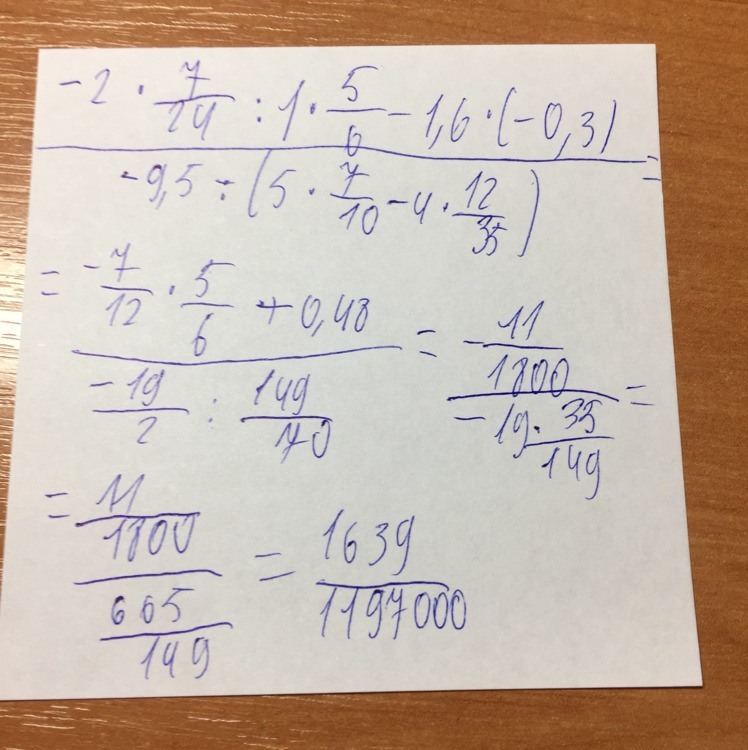 -2 · 7/24 : 1 · 5/6 - 1,6 · (-0,3)
-9,5 ÷ (5 · 7/10 - 4 · 12/35) =
= -7/12 · 5/6 + 0,48
-19/2 : 149/70
= -11/1800
-19 · 35/149 =
= 11/1800
665/149
= 1639/1197000